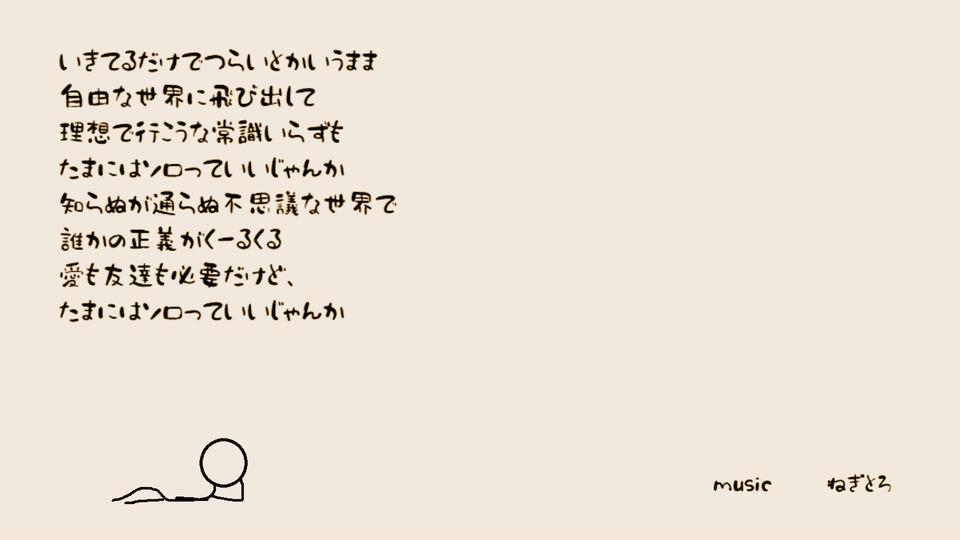 いきてるだけでつらいとかいうまま
自由な世界に飛び出して
理想で行こうな常識いらずも
たまにはソロっていいじゃんか
知らぬが通らぬ不思議な世界で
誰かの正義がくーるくる
愛も友達も必要だけど、
たまにはソロっていいじゃんか
music ねぎとろ